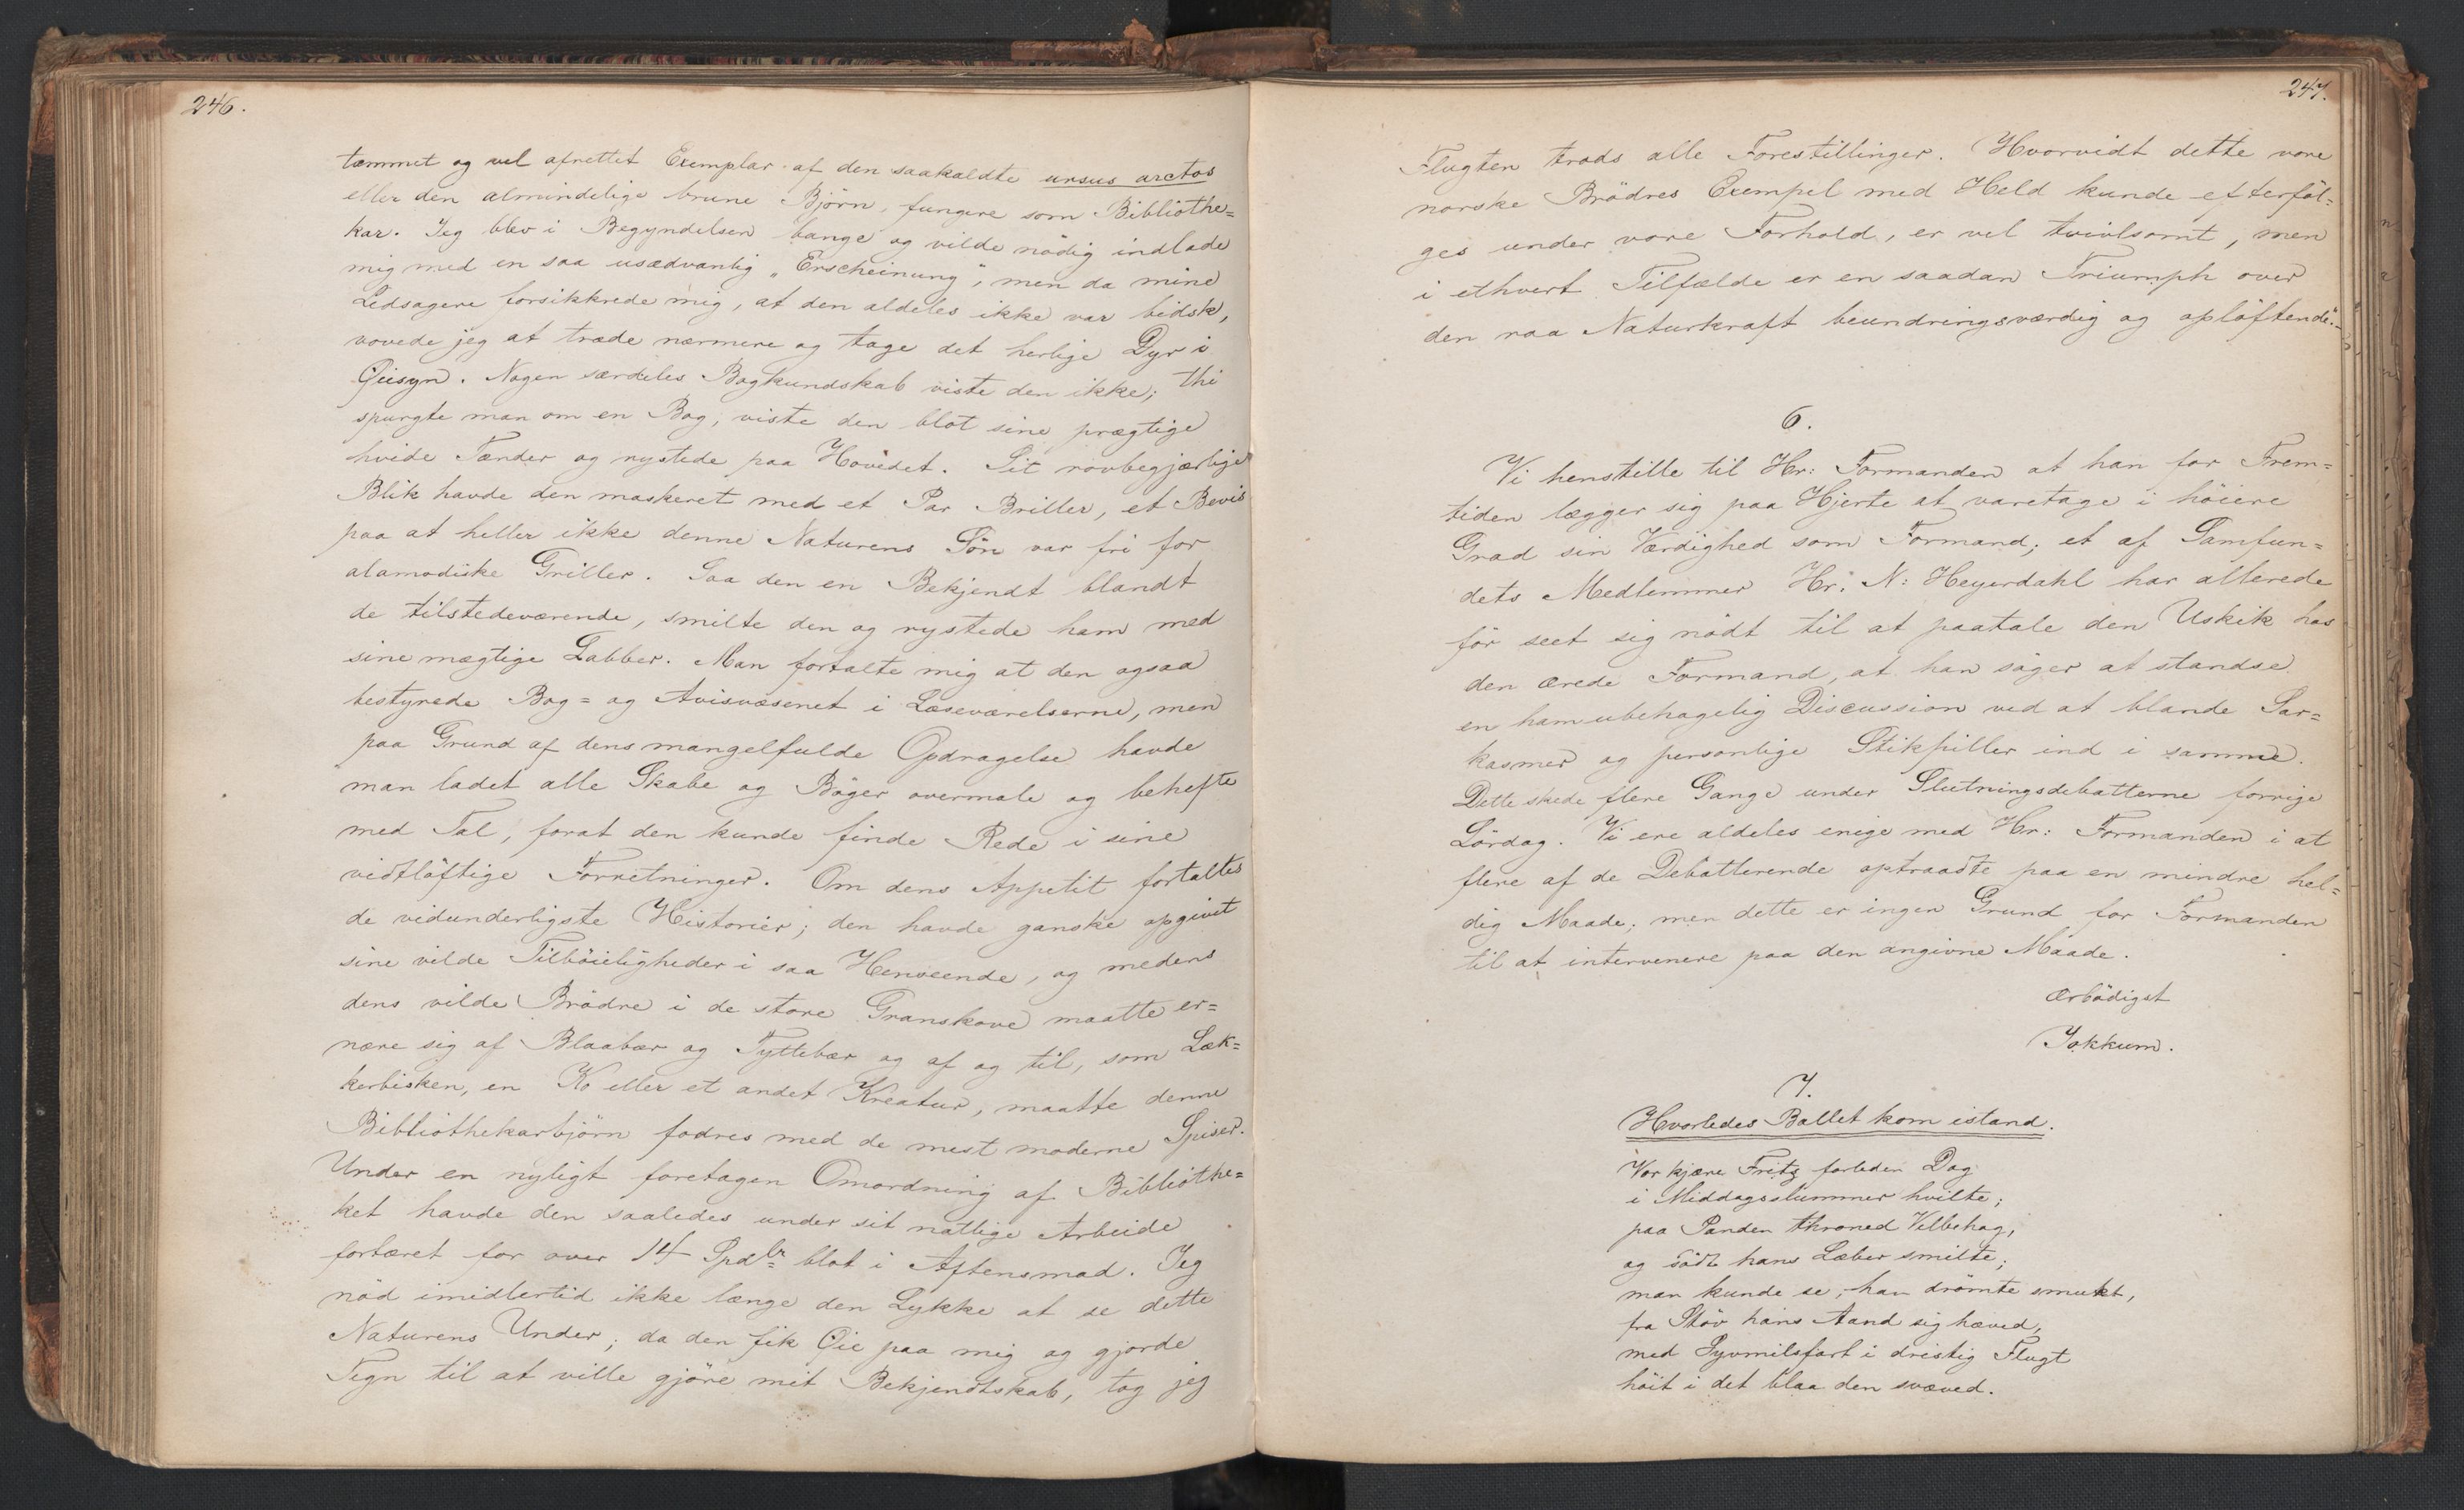 246.
tæmmet og vel afrettet Exemplar af den saakaldte ursus arctos
eller den almindelige brune Björn, fungere som Bibliothe=
kar. Jeg blev i Begyndelsen bange og vilde nödig indlade
mig med en saa usædvanlig „Erscheinung“, men da mine
Ledsagere forsikkrede mig, at den aldeles ikke var bidsk,
vovede jeg at træde nærmere og tage det herlige Dyr i
Öiesyn. Nogen særdeles Bogkundskab viste den ikke; thi
spurgte man om en Bog, viste den blot sine prægtige
hvide Tænder og rystede paa Hovedet. Sit rovbegjærlige
Blik havde den maskeret med et Par Briller, et Bevis
paa at heller ikke denne Naturens Sön var fri for
alamodiske Griller. Saa den en Bekjendt blandt
de tilstedeværende, smilte den og rystede ham med
sine mægtige Labber. Man fortalte mig at den ogsaa
bestyrede Bog= og Avisvæsenet i Læseværelserne, men
paa Grund af dens mangelfulde Opdragelse havde
man ladet alle Skabe og Böger overmale og behefte
med Tal, forat den kunde finde Rede i sine
vidtlöftige Forretninger. Om dens Appetit fortaltes
de vidunderligste Historier; den havde ganske opgivet
sine vilde Tilböieligheder i saa Henseende, og medens
dens vilde Brödre i de store Granskove maatte er=
nære sig af Blaabær og Tyttebær og af og til, som Læk=
kerbisken, en Ko eller et andet Kreatur, maatte denne
Bibliothekarbjörn fodres med de mest moderne Spiser.
Under en nyligt foretagen Omordning af Bibliothe=
ket havde den saaledes under sit natlige Arbeide
fortæret for over 14 Spdlr blot i Aftensmad. Jeg
nöd imidlertid ikke længe den Lykke at se dette
Naturens Under; da den fik Öie paa mig og gjorde
Tegn til at ville gjöre mit Bekjendtskab, tog jeg
247.
Flugten trods alle Forestillinger. Hvorvidt dette vore
norske Brödres Exempel med Held kunde efterföl=
ges under vore Forhold, er vel tvivlsomt, men
i ethvert Tilfælde er en saadan Triumph over
den raa Naturkraft beundringsværdig og oplöftende.–
6.
Vi henstille til Hr: Formanden at han for Frem=
tiden lægger sig paa Hjerte at varetage i höiere
Grad sin Værdighed som Formand; et af Samfun=
dets Medlemmer Hr: N: Heyerdahl har allerede
för seet sig nödt til at paatale den Uskik hos
den ærede Formand, at han söger at standse
en ham ubehagelig Discussion ved at blande Sar=
kasmer og personlige Stikpiller ind i samme.
Dette skede flere Gange under Slutningsdebatterne forrige
Lördag. Vi ere aldeles enige med Hr: Formanden i at
flere af de Debatterende optraadte paa en mindre hel=
dig Maade; men dette er ingen Grund for Formanden
til at intervenere paa den angivne Maade.
Ærbödigst
Jokkum.
7.
Hvorledes Ballet kom istand.
Vor kjære Fritz forleden Dag
i Middagsslummer hvilte;
paa Panden throned Velbehag,
og södt hans Læber smilte;
man kunde se, han drömte smukt,
fra Stöv hans Aand sig hæved,
med Syvmilsfart i dristig Flugt
höit i det blaa den svæved.